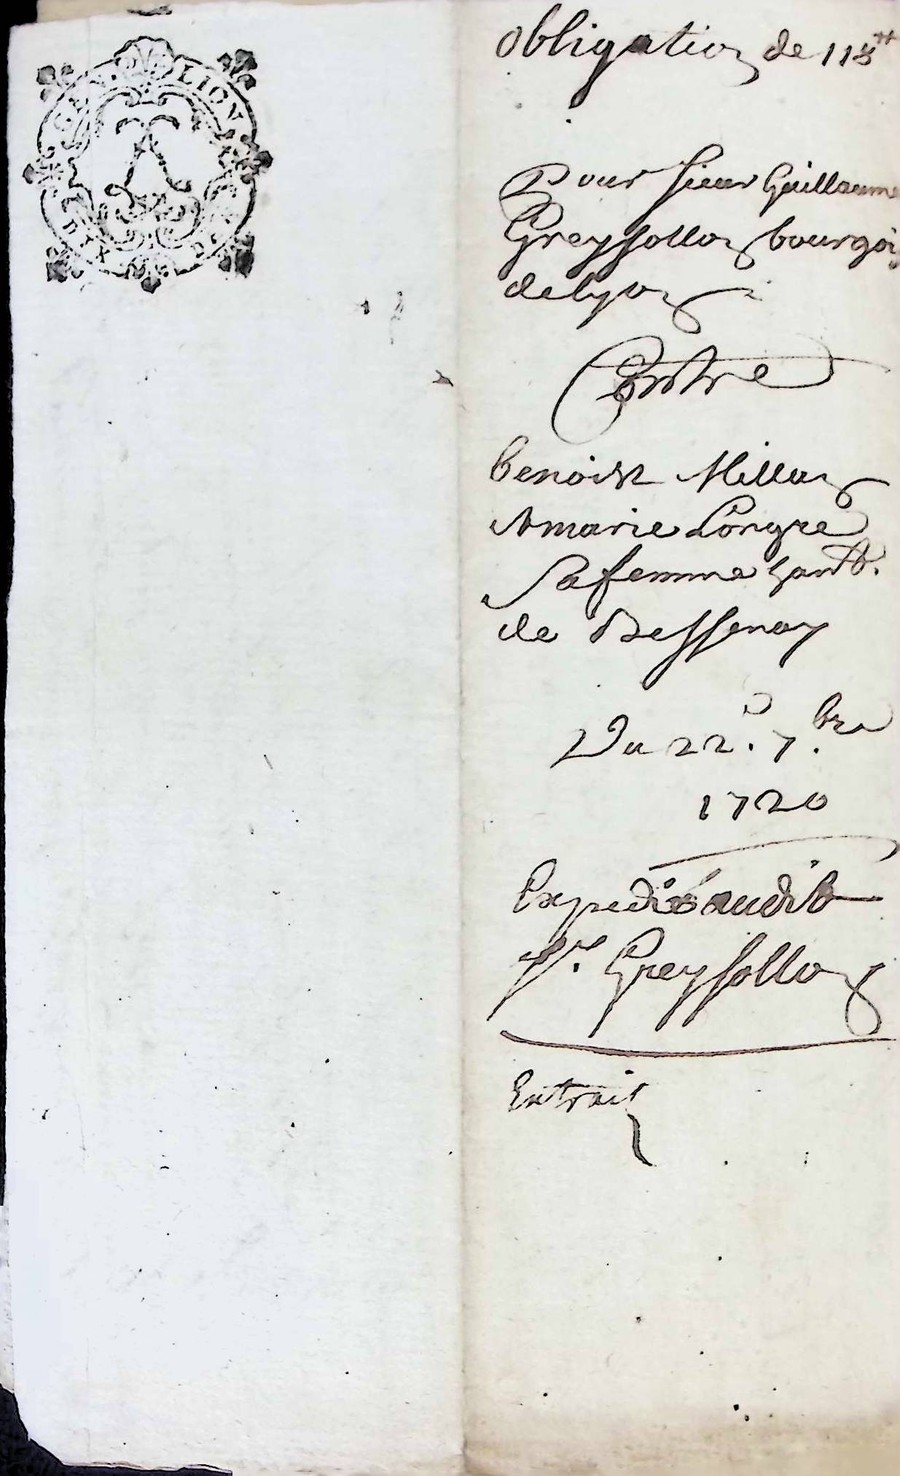 GEN. D. LION
DIX DEN
obligation de 118ᵗᵗ
Pour sieur Guillaume
Greysollon bourgois
de lyon
Contre
benoist Millan
& marie Longre
sa femme hantˢ.
de Bessenay
Du 22ᵉ. 7.bre
1720
Expedié audit
Sʳ. Greysollon
Extrait